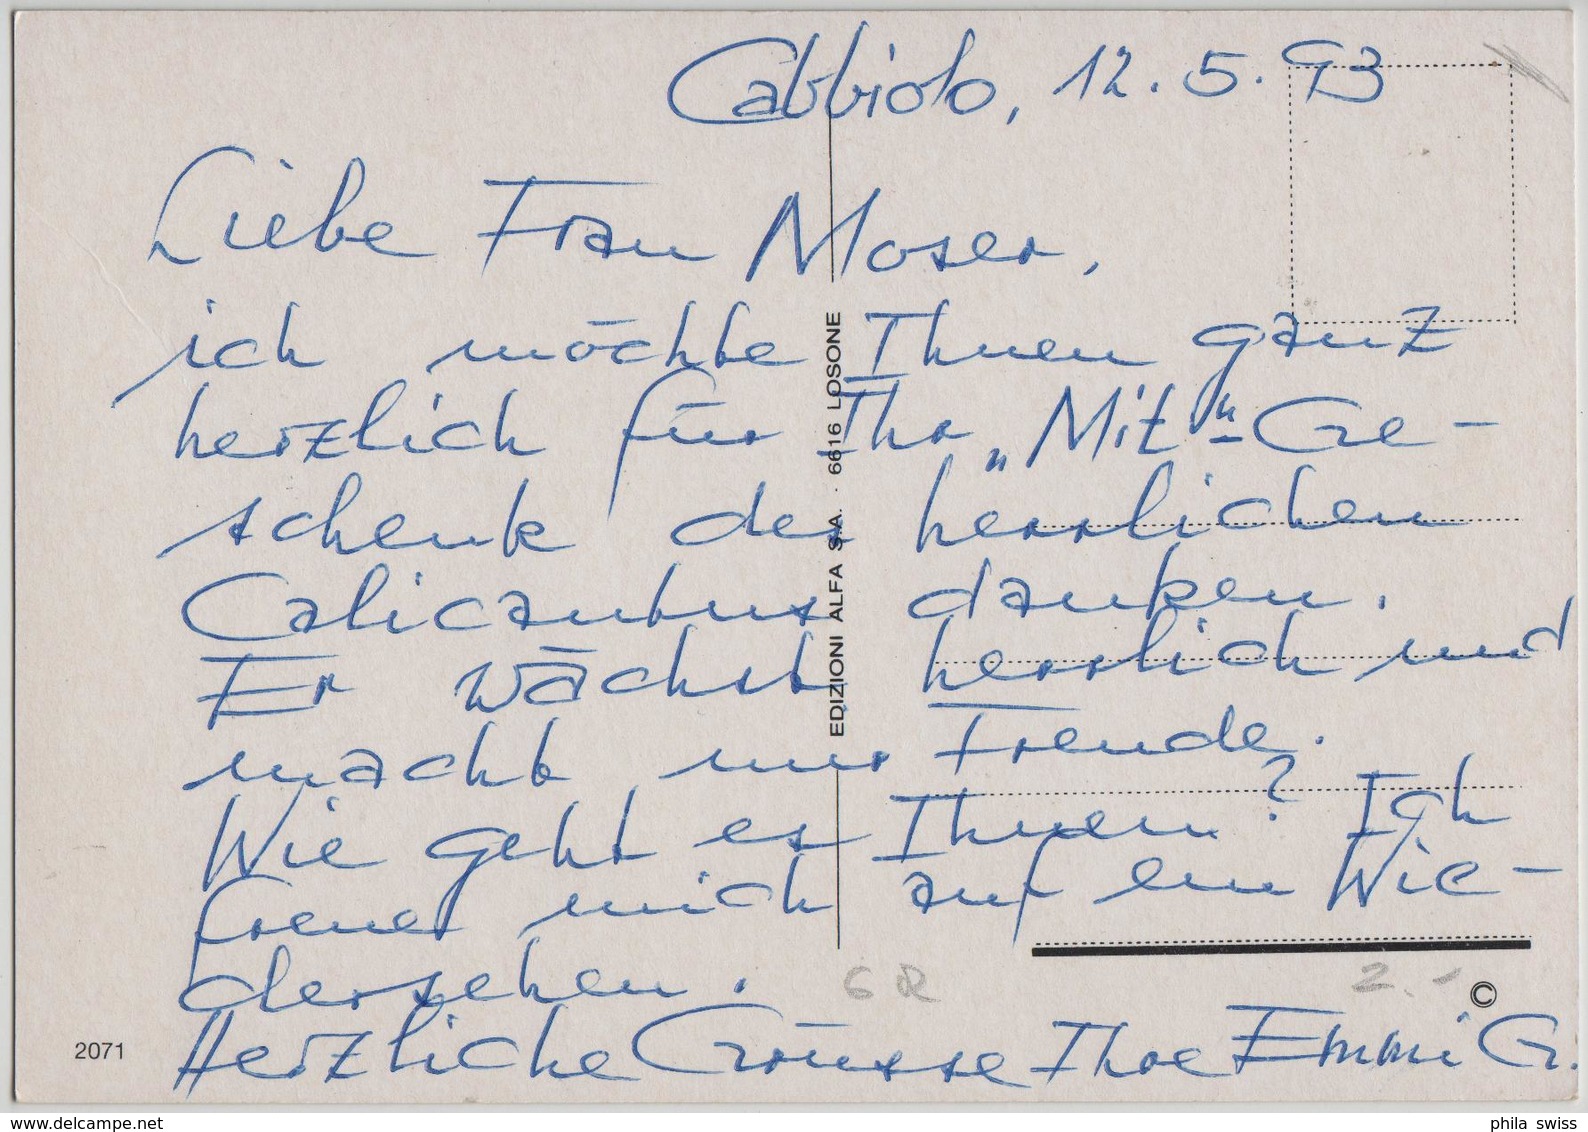 Cabbiolo, 12.5.93
Liebe Frau Moser,
ich möchte Ihnen ganz
herzlich für Ihr „Mit"-Ge-
schenk des herrlichen
Calicantus danken.
Er wächst herrlich und
macht nur Freude.
Wie geht es Ihnen? Ich
freue mich auf ein Wie-
dersehen.
Herzliche Grüsse Ihre Emmi G.
EDIZIONI ALFA S.A. · 6616 LOSONE
6R
2.-
©
2071
phila swiss